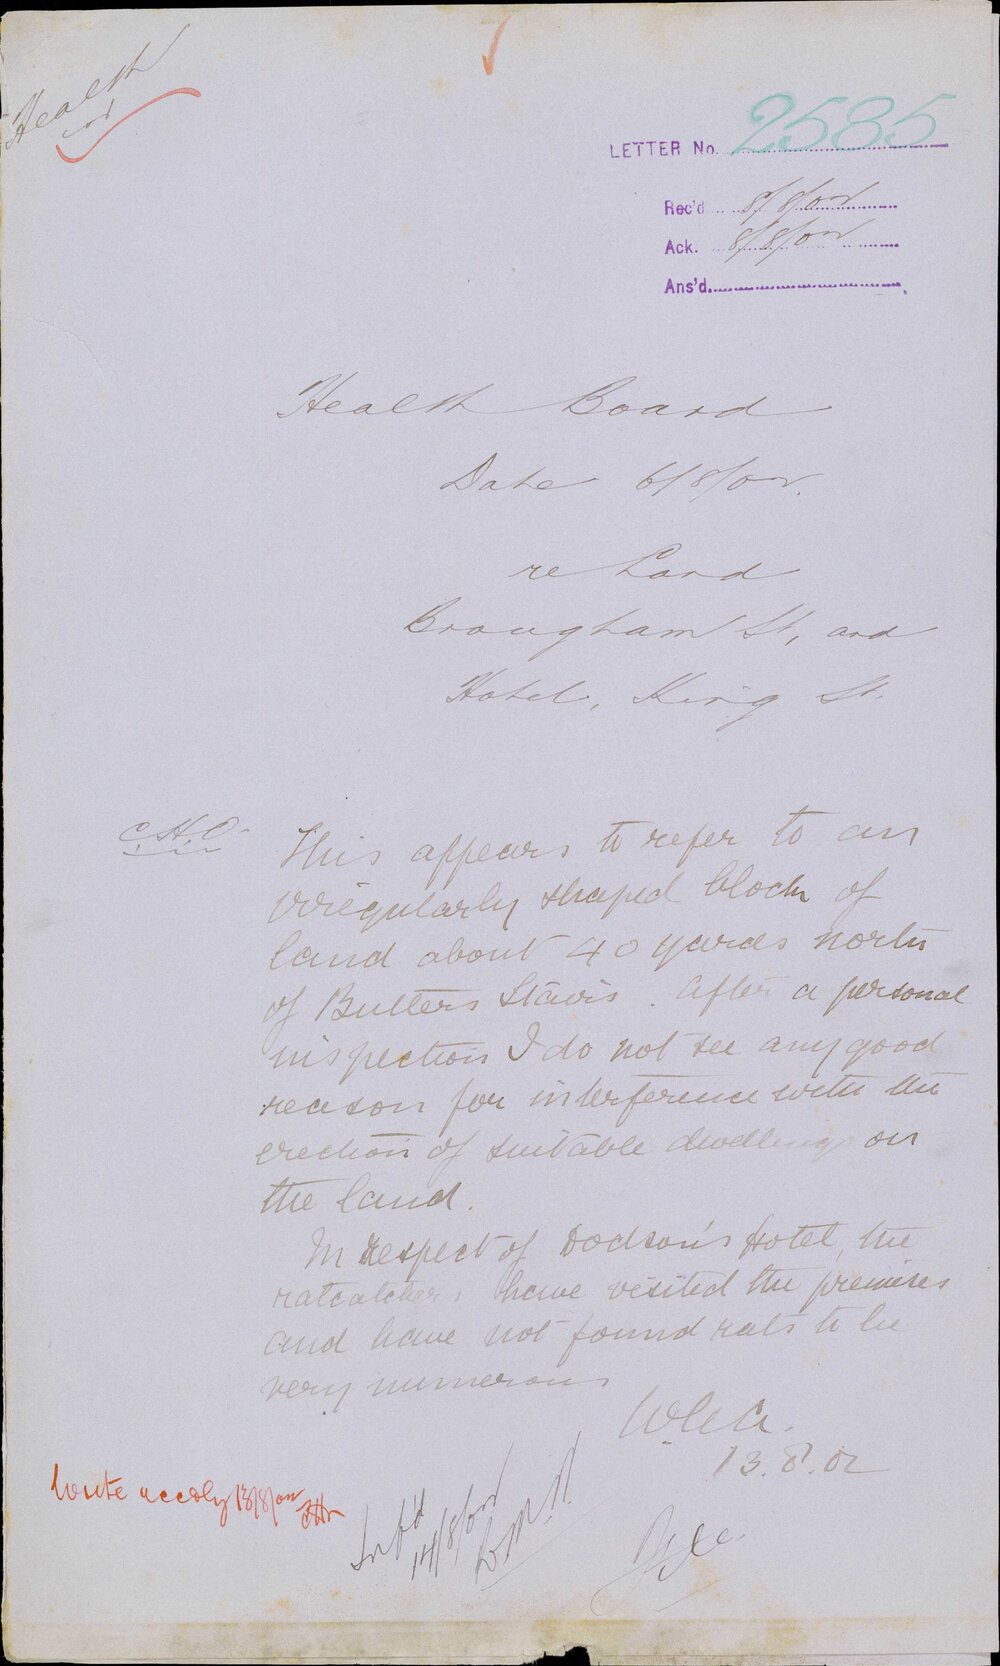 Health
LETTER No. 2585
Rec'd 8/8/02
Ack. 8/8/02
Ans'd.
Health Board
Date 6/8/02.
re Land
Brougham St, and
Hotel, King St.
C.H.O.
This appears to refer to an
irregularly shaped block of
land about 40 yards north
of Butlers Stairs. After a personal
inspection I do not see any good
reason for interference with the
erection of suitable dwellings on
the land.
In respect of Dodson's Hotel, the
ratcatchers have visited the premises
and have not found rats to be
very numerous
13.8.02
Write accdly 13/8/02
Inf'd
14/8/02
File